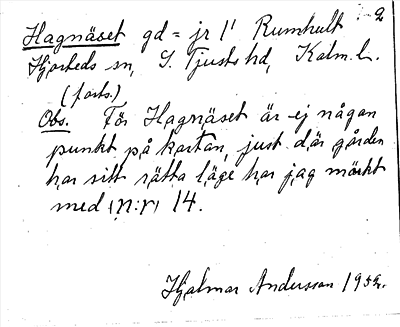 2
Hagnäset gd = jr 1' Rumhult
Hjorteds sn, S. Tjusts hd, Kalm. l.
(forts.)
Obs. För Hagnäset är ej någon
punkt på kartan, just där gården
har sitt rätta läge har jag märkt
med (n:r) 14.
Hjalmar Andersson 195